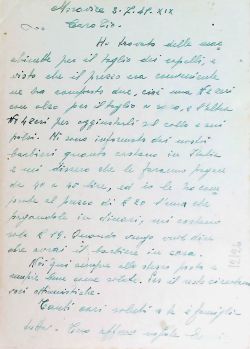 3.7.41.XIX
Caro Zio.
Ho trovato delle mac
chinette per il taglio dei capelli, e
visto che il prezzo era conveniente
ne ho comperate due, così una
con olio per il taglio a zero, e l'altra
per aggiustarli sul collo e sui
polsi. Mi sono informato dai nostri
barbieri quanto costano in Italia
e mi dissero che le fanno pagare
da 40 a 45 lire, ed io le ho com
al prezzo di £ 20 l'una che
pagandole in dinari, mi costano
sole £ 19. Quando vengo vuol dire
che avrai il barbiere in casa.
Noi qui sempre allo stesso posto e
anche bene come salute. Per il resto
Tanti cari saluti a te e famiglia
tutta. Tuo aff.mo nipote